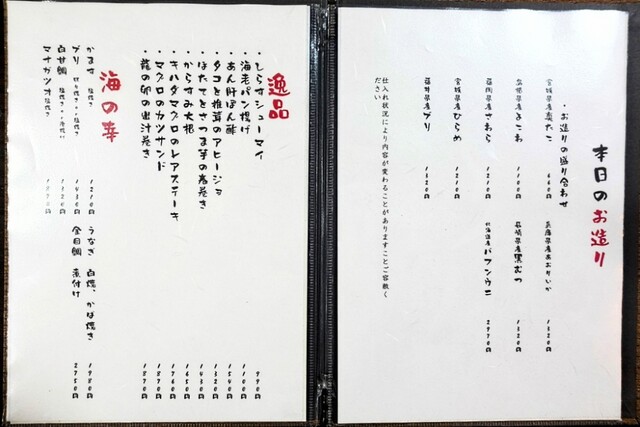 本日のお造り
・お造りの盛り合わせ
宮城県産真だこ 660円
兵庫県産あおりいか 1320円
長崎県産黒むつ 1320円
宮城県産ひらめ 1210円
北海道産バフンウニ 2970円
福井県産ブリ 1320円
仕入れ状況により内容が変わることがありますことご容赦く
ださい。
逸品
・しらすシューマイ 990円
・海老パン揚げ 1100円
・あん肝ぽん酢 1540円
・タコと椎茸のアヒージョ 1320円
・ほたてとさつま芋の春巻き 1430円
・からすみ大根 1650円
・キハダマグロのレアステーキ 1760円
・マグロのカツサンド 1870円
・龍の卵の出汁巻き 1870円
海の幸
かます 塩焼き 1210円
ブリ 1430円
白甘鯛 1320円
マナガツオ 塩焼き 1870円
うなぎ 白焼、かば焼き 1980円
金目鯛 煮付け 2750円